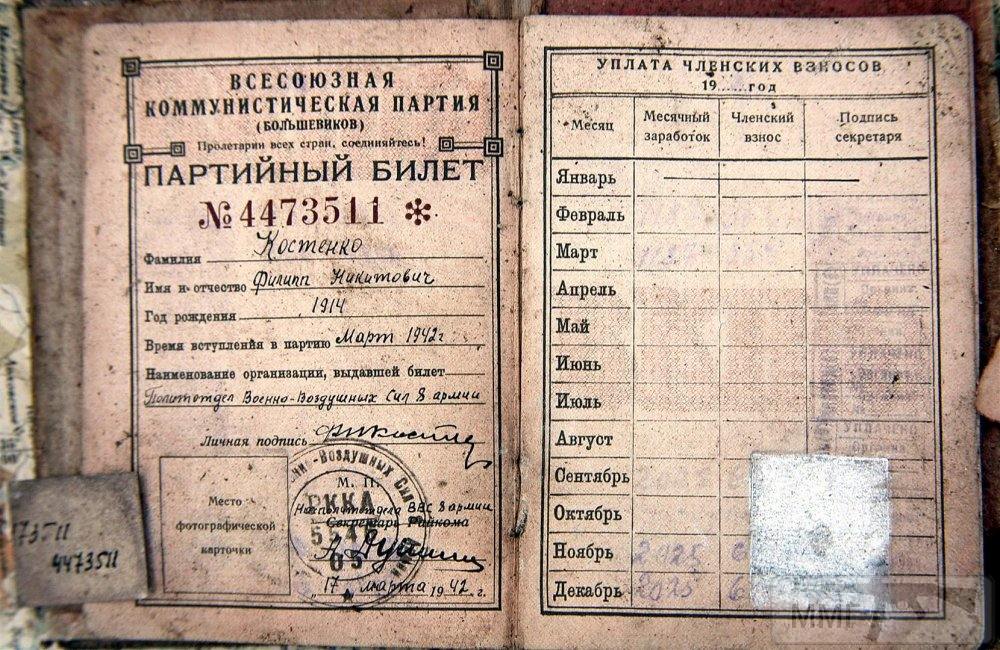 ВСЕСОЮЗНАЯ
КОММУНИСТИЧЕСКАЯ ПАРТИЯ
(БОЛЬШЕВИКОВ)
Пролетарии всех стран, соединяйтесь!
ПАРТИЙНЫЙ БИЛЕТ
№ 4473511 *
Фамилия Костенко
Имя и отчество Филипп Никитович
Год рождения 1914
Время вступления в партию Март 1942 г
Наименование организации, выдавшей билет
Политотдел Военно-Воздушных Сил 8 армии
Личная подпись
Место
фотографической
карточки
-Воздушных Сил
М. П.
РККА
Нач политотдела ВВС 8 армии
Секретарь Райкома
05
"17" марта 1942 г.
73511
4473511
УПЛАТА ЧЛЕНСКИХ ВЗНОСОВ
19......год
Месяц
Месячный заработок
Членский взнос
Подпись секретаря
Январь
Февраль
Март
Апрель
Май
Июнь
Июль
Август
Сентябрь
Октябрь
Ноябрь 2025
Декабрь 2025
УПЛАЧЕНО
УПЛАЧЕНО
УПЛАЧЕНО